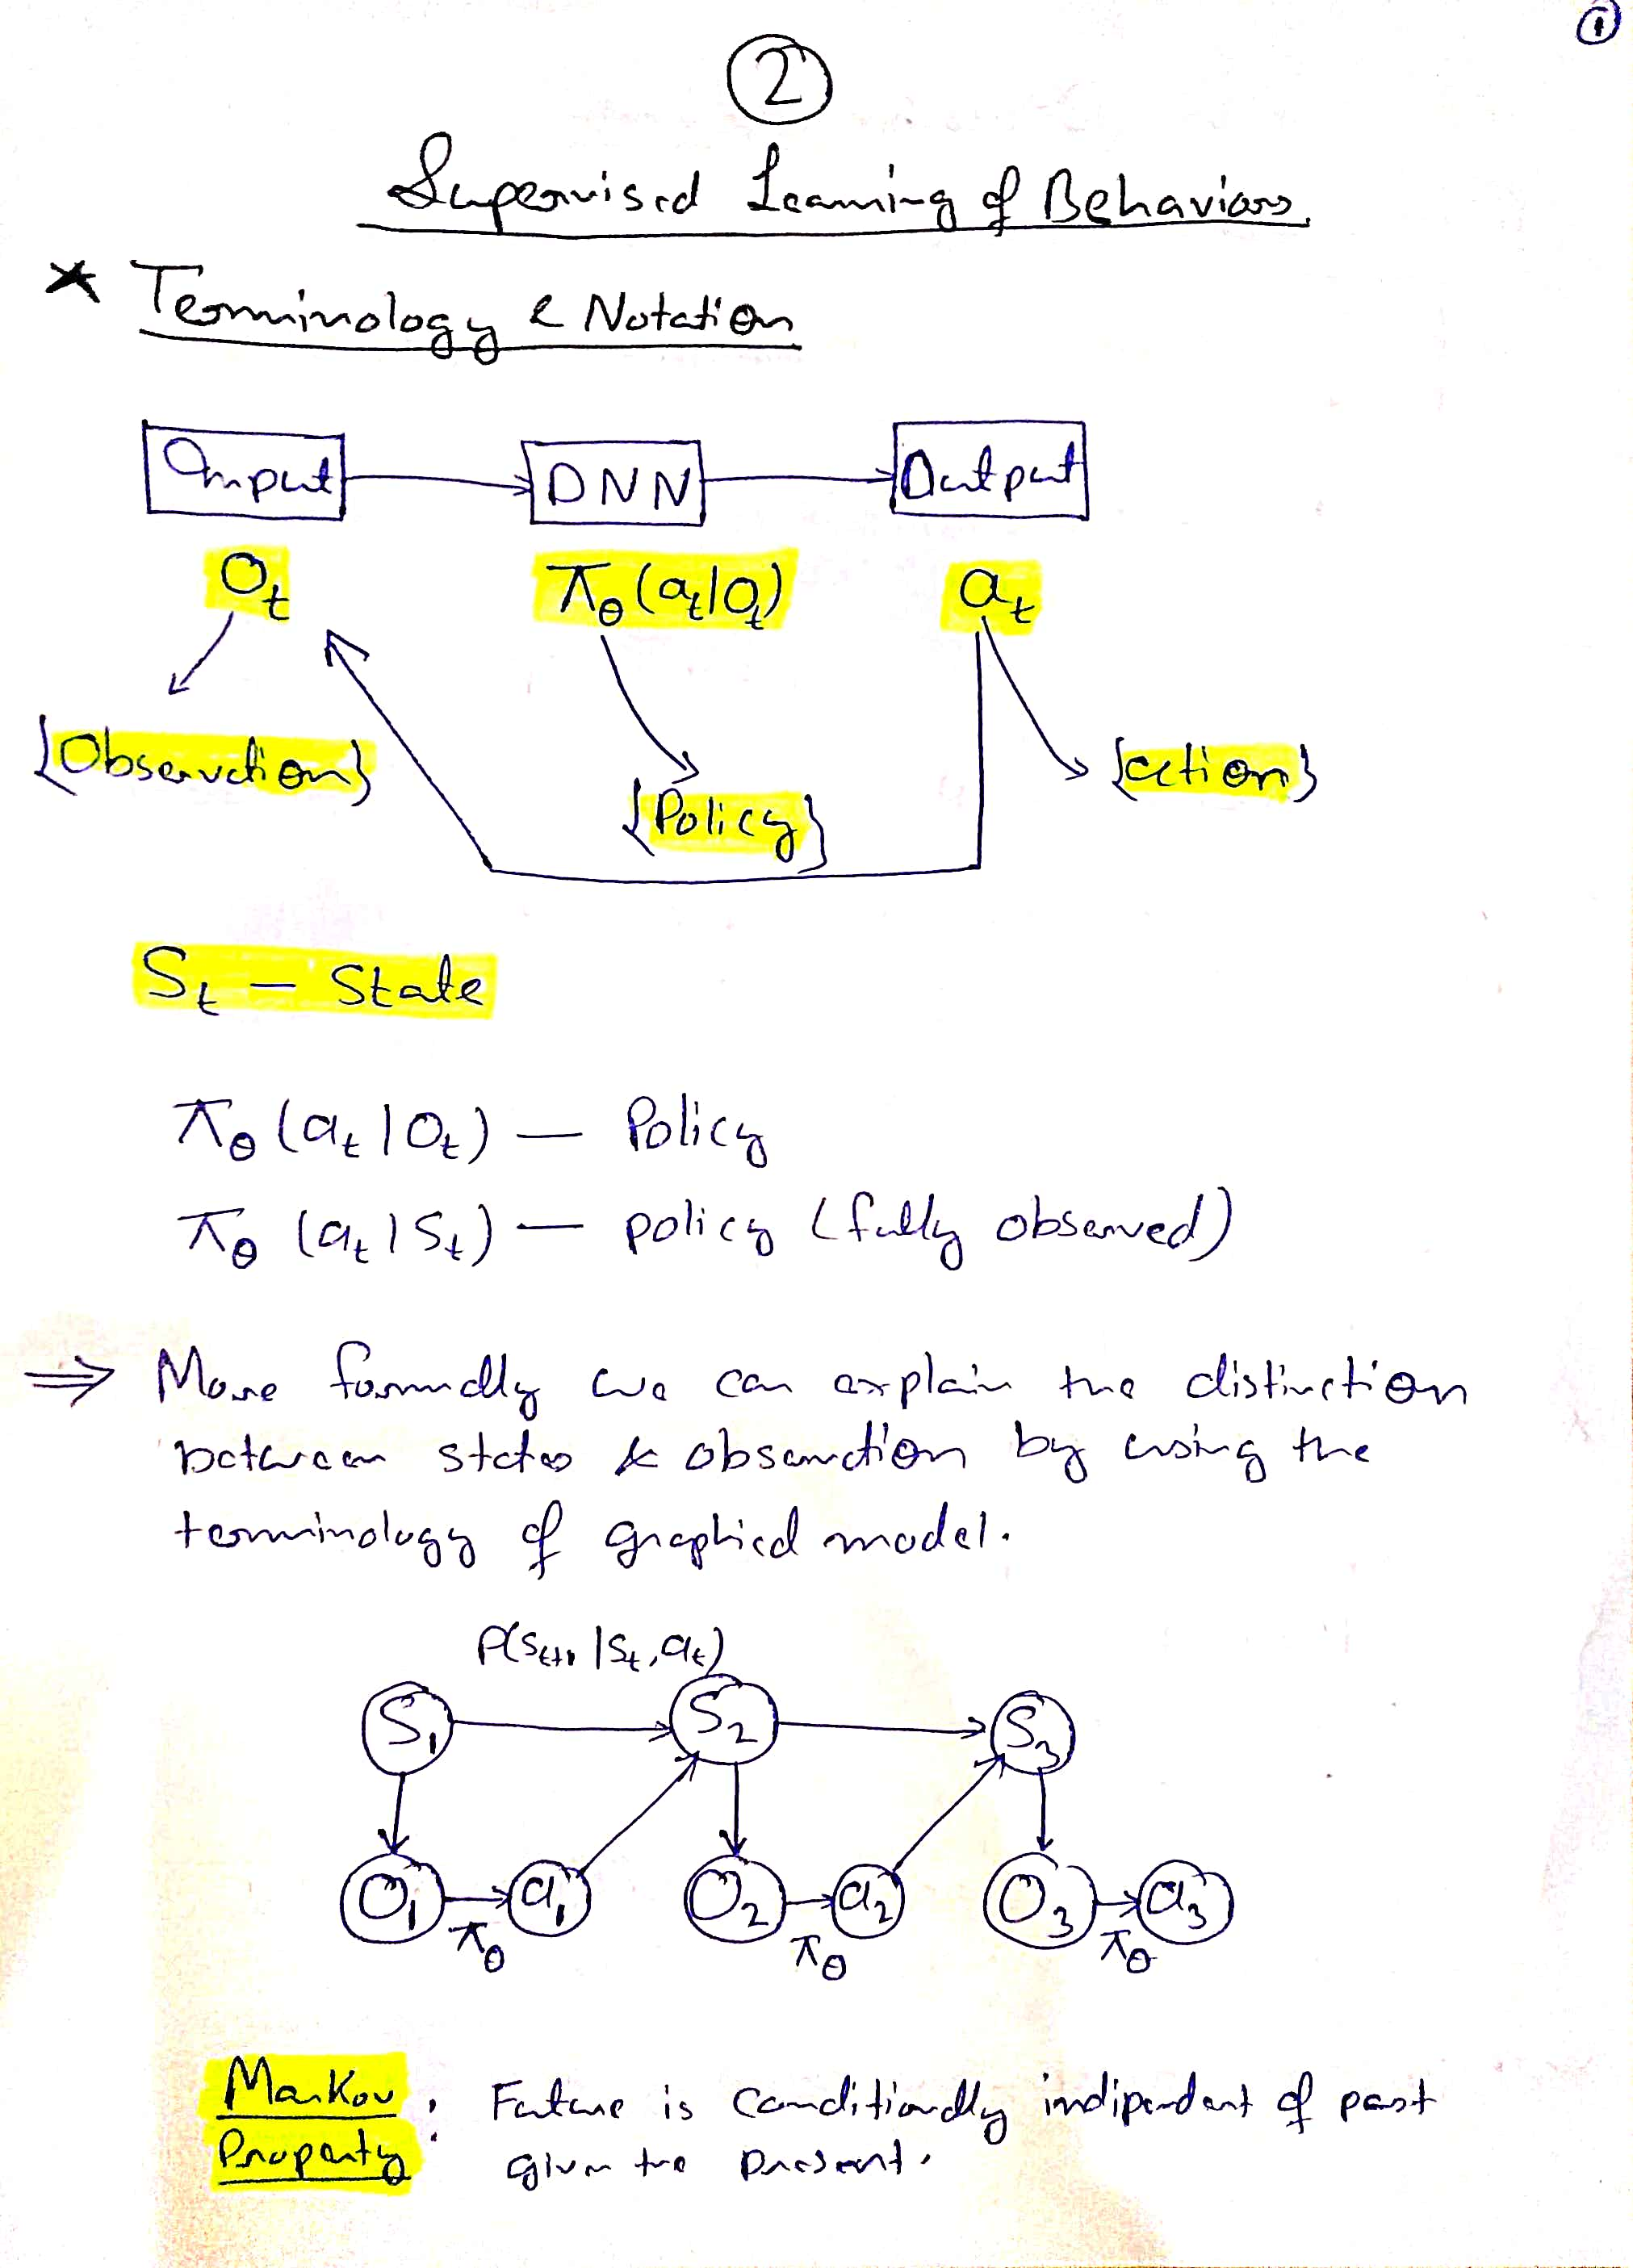 1
2
Supervised Learning of Behaviors.
* Terminology & Notation
Input → DNN → Output
O_t π_θ(a_t|O_t) a_t
{Observation} {Policy} {action}
S_t – State
π_θ(a_t|O_t) — Policy
π_θ(a_t|S_t) — policy (fully observed)
⇒ More formally we can explain the distinction
between states & observation by using the
terminology of graphical model.
P(S_{t+1}|S_t, a_t)
S_1 S_2 S_3
O_1 a_1 O_2 a_2 O_3 a_3
π_θ π_θ π_θ
Markov Property : Future is conditionally indipendent of past
given the present.